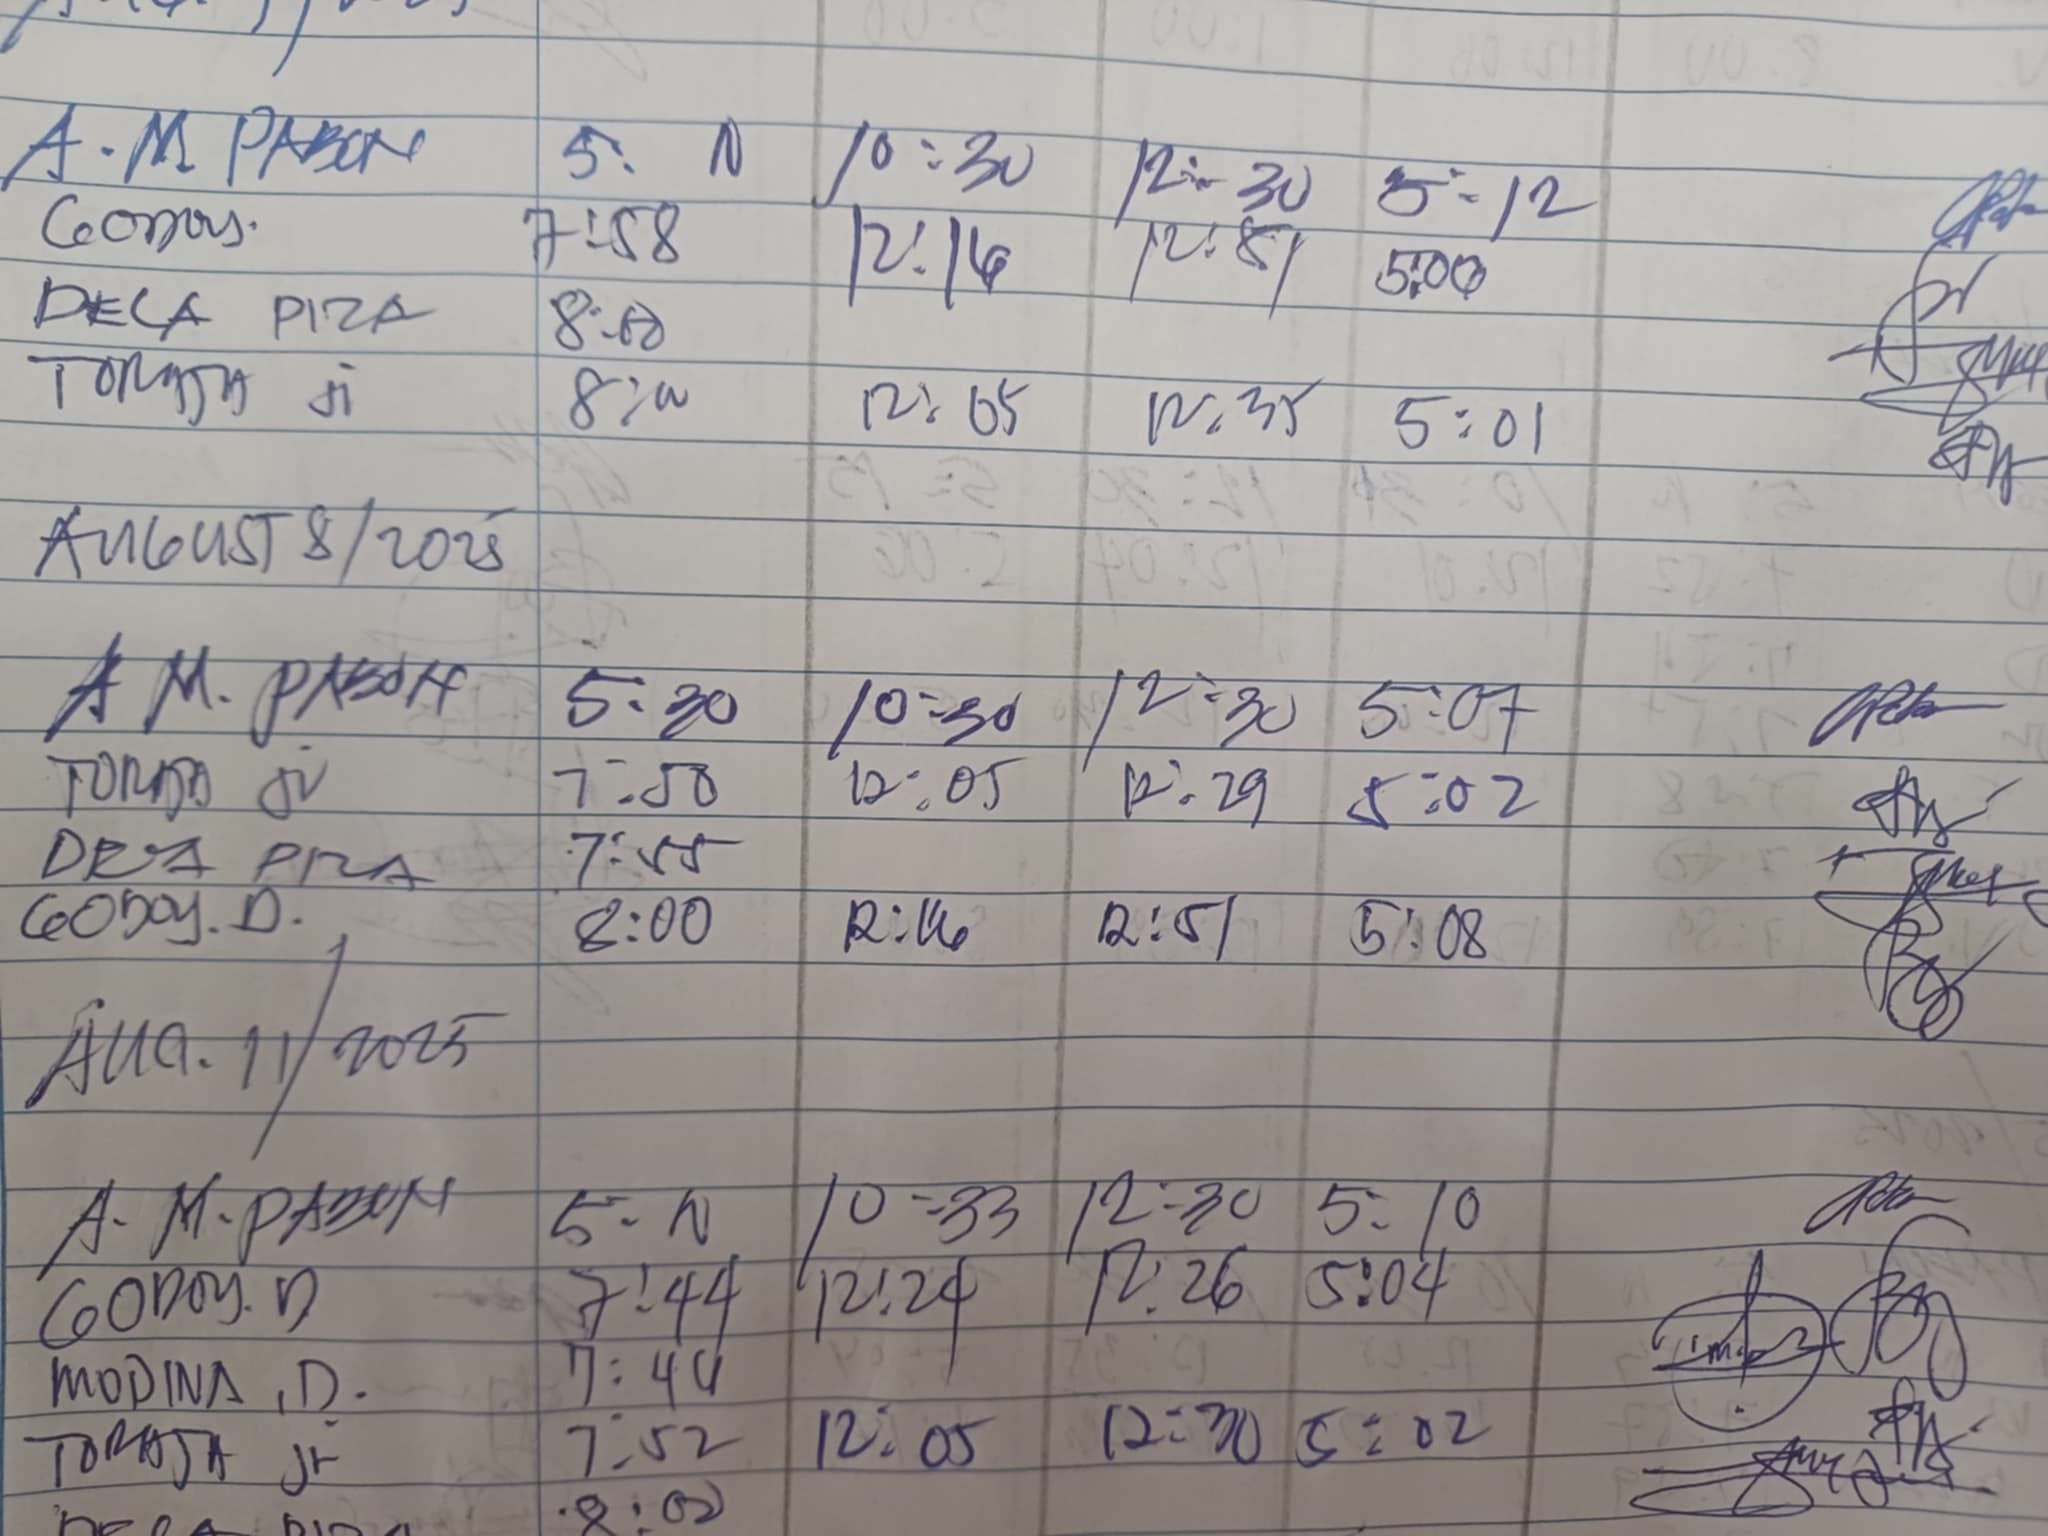 A. M. PABON 5: N 10:30 12:30 5:12
GODOY. 7:58 12:16 12:51 5:00
DELA PIZA 8:00
TORAJA Jr 8:00 12:05 12:35 5:01
AUGUST 8/2025
A M. PABON 5:30 10:30 12:30 5:07
TORAJA Jr 7:50 12:05 12:29 5:02
DELA PIZA 7:55
GODOY. D. 8:00 12:16 12:51 5:08
AUG. 11/2025
A. M. PABON 5: N 10:33 12:30 5:10
GODOY. D 7:44 12:24 12:26 5:04
MODINA, D. 7:44
TORAJA Jr 7:52 12:05 12:30 5:02
DELA PIZA 8:00